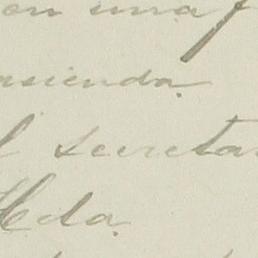 on una f
asienda.
l secreta
Hda.